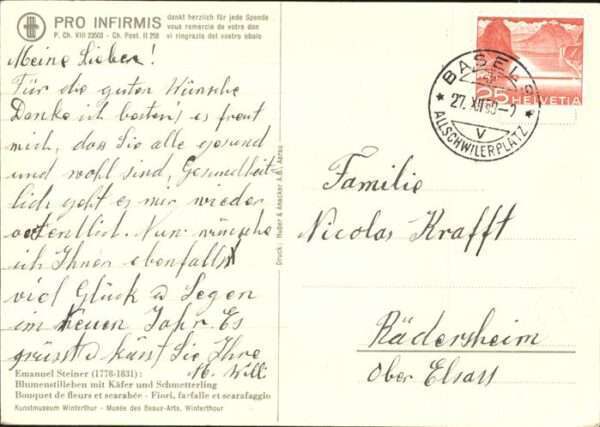 PRO INFIRMIS dankt herzlich für jede Spende
vous remercie de votre don
P. Ch. VIII 23503 - Ch. Post. II 258 vi ringrazia del vostro obolo
Meine Lieben!
Für die guten Wünsche
Danke ich bestens! es freut
mich, das Sie alle gesund
und wohl sind, Gesundheit-
lich geht es mir wieder
ordentlich. Nun wünsche
ich Ihnen ebenfalls
viel Glück u Segen
im neuen Jahr. Es
grüsst u küsst Sie Ihre
M. Willi
Emanuel Steiner (1778-1831):
Blumenstilleben mit Käfer und Schmetterling
Bouquet de fleurs et scarabée - Fiori, farfalle et scarafaggio
Kunstmuseum Winterthur - Musée des Beaux-Arts, Winterthour
Druck: Huber & Anacker A.G., Aarau
BASEL 9
27. XII 50
V
ALLSCHWILERPLATZ
25 HELVETIA
Familie
Nicolas Krafft
Rädersheim
Ober Elsass